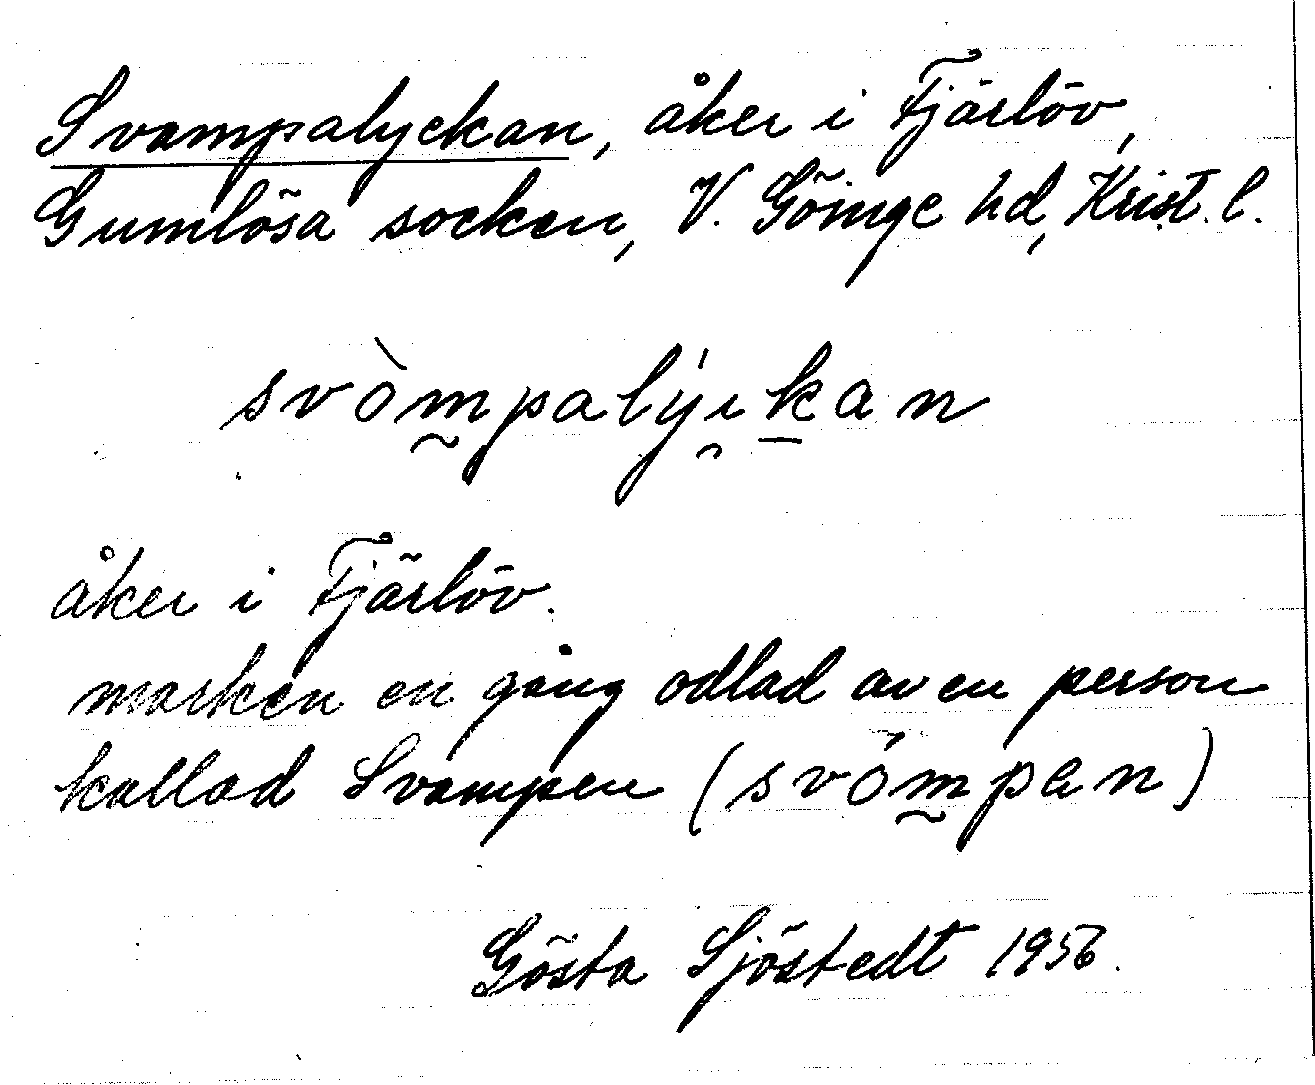 Svampalyckan, åker i Fjärlöv,
Gumlösa socken, V. Göinge hd, Krist. l.
svòm̰palýi̯ḵan
åker i Fjärlöv.
marken en gång odlad av en person
kallad Svampen (svóm̰pan)
Gösta Sjöstedt 1956.